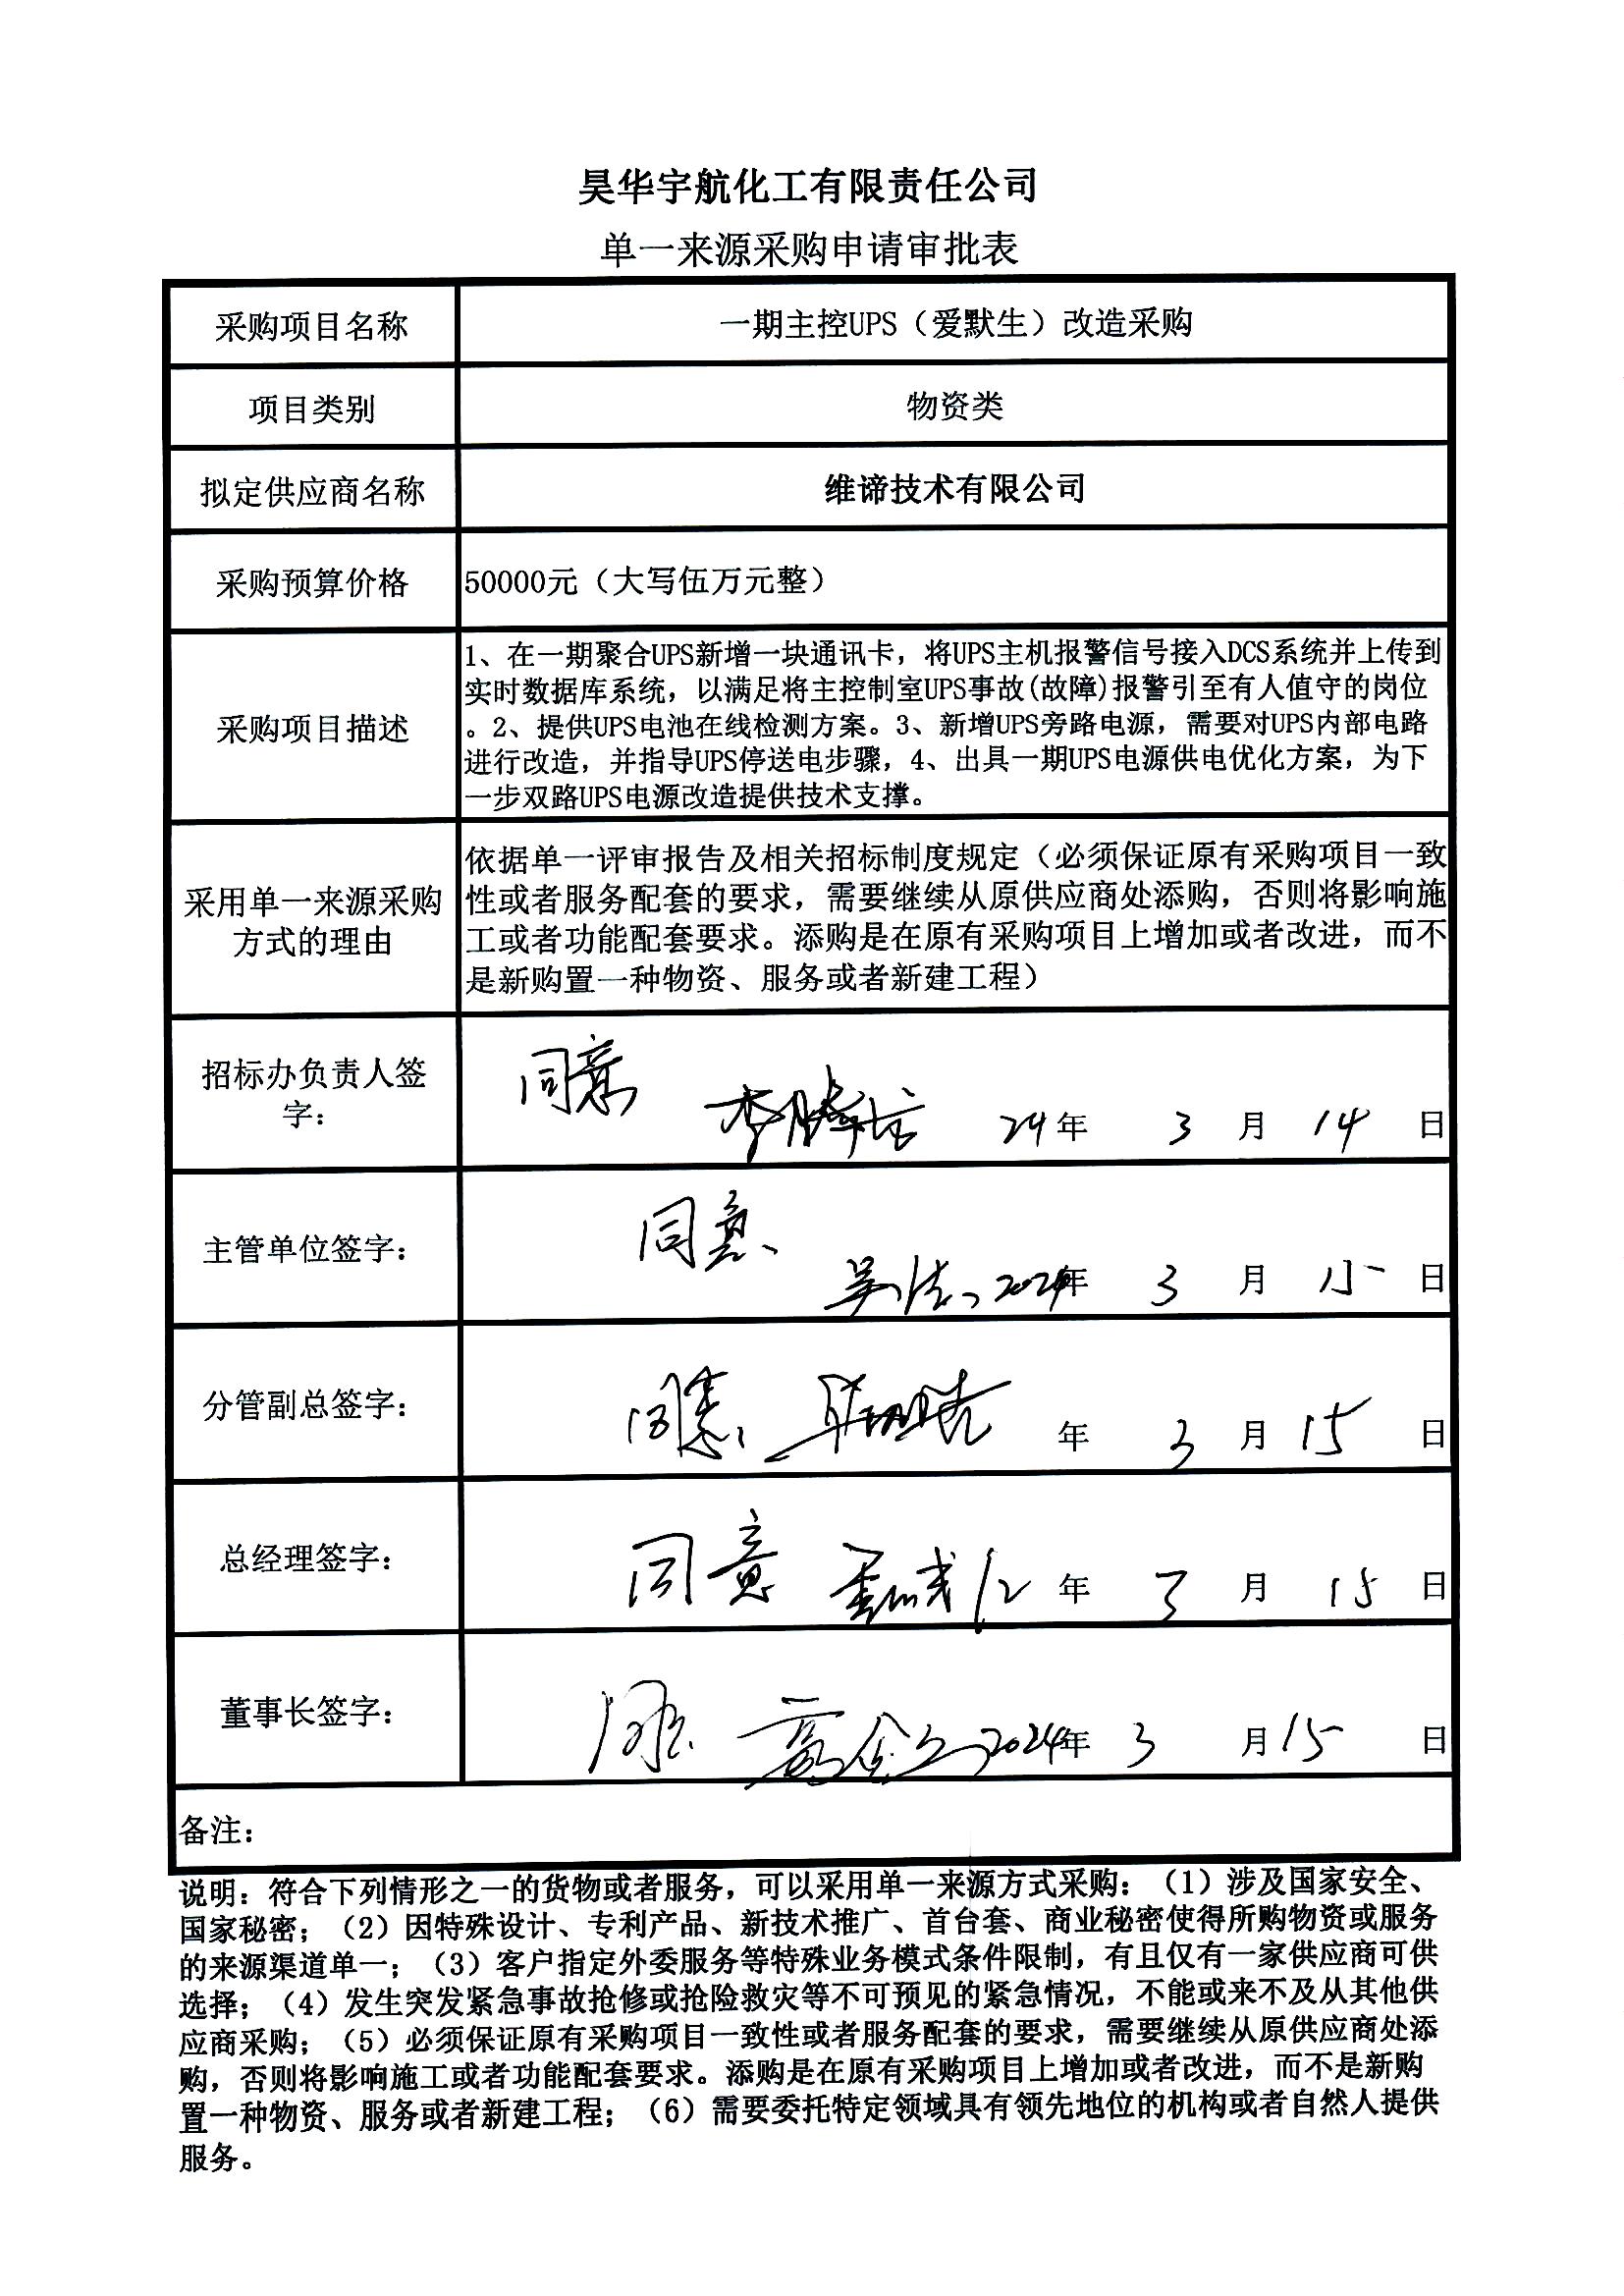 昊华宇航化工有限责任公司
单一来源采购申请审批表
采购项目名称
一期主控UPS（爱默生）改造采购
项目类别
物资类
拟定供应商名称
维谛技术有限公司
采购预算价格
50000元（大写伍万元整）
采购项目描述
1、在一期聚合UPS新增一块通讯卡，将UPS主机报警信号接入DCS系统并上传到
实时数据库系统，以满足将主控制室UPS事故(故障)报警引至有人值守的岗位
。2、提供UPS电池在线检测方案。3、新增UPS旁路电源，需要对UPS内部电路
进行改造，并指导UPS停送电步骤，4、出具一期UPS电源供电优化方案，为下
一步双路UPS电源改造提供技术支撑。
采用单一来源采购
方式的理由
依据单一评审报告及相关招标制度规定（必须保证原有采购项目一致
性或者服务配套的要求，需要继续从原供应商处添购，否则将影响施
工或者功能配套要求。添购是在原有采购项目上增加或者改进，而不
是新购置一种物资、服务或者新建工程）
招标办负责人签
字：
同意
24年 3 月 14 日
主管单位签字：
同意
2024年 3 月 15 日
分管副总签字：
同意
年 3 月 15 日
总经理签字：
同意
年 3 月 15 日
董事长签字：
同意
2024年 3 月 15 日
备注：
说明：符合下列情形之一的货物或者服务，可以采用单一来源方式采购：（1）涉及国家安全、
国家秘密；（2）因特殊设计、专利产品、新技术推广、首台套、商业秘密使得所购物资或服务
的来源渠道单一；（3）客户指定外委服务等特殊业务模式条件限制，有且仅有一家供应商可供
选择；（4）发生突发紧急事故抢修或抢险救灾等不可预见的紧急情况，不能或来不及从其他供
应商采购；（5）必须保证原有采购项目一致性或者服务配套的要求，需要继续从原供应商处添
购，否则将影响施工或者功能配套要求。添购是在原有采购项目上增加或者改进，而不是新购
置一种物资、服务或者新建工程；（6）需要委托特定领域具有领先地位的机构或者自然人提供
服务。